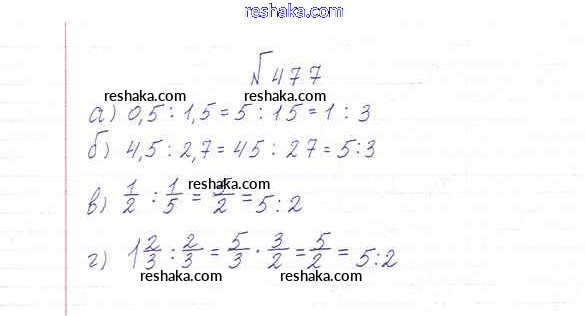 reshaka.com
№477
reshaka.com reshaka.com
а) 0,5 : 1,5 = 5 : 15 = 1 : 3
б) 4,5 : 2,7 = 45 : 27 = 5:3
reshaka.com
в) 1/2 : 1/5 = 5/2 = 5:2
г) 1 2/3 : 2/3 = 5/3 · 3/2 = 5/2 = 5:2
reshaka.com reshaka.com